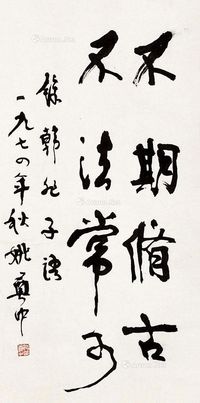 不期脩古
不法常可
録韓非子語
一九七四年秋姚奠中